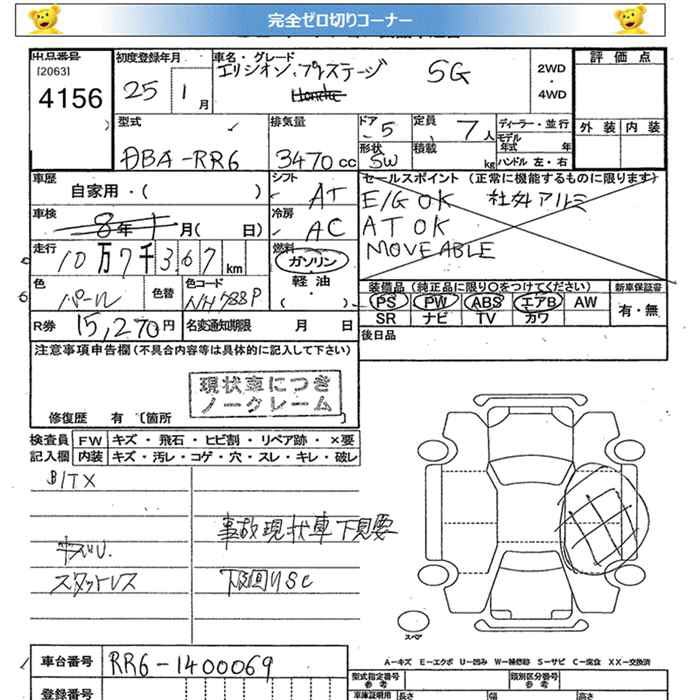 完全ゼロ切りコーナー
出品番号 初度登録年月 車名・グレード 評価点
[2063] エリシオン.プレステージ SG 2WD
4156 25 1 月 4WD
外装 内装
型式 排気量 ドア 5 定員 7人 ディーラー・並行
モデル年式 年
DBA-RR6 3470cc 形状 SW 積載 kg ハンドル 左・右
車歴 シフト セールスポイント (正常に機能するものに限ります)
自家用・( ) AT E/G OK 社外アルミ
車検 冷房 AT OK
8年 1月( 日) AC MOVEABLE
走行 燃料
10万7千367km ガソリン
色 色替 色コード 軽油 装備品 (純正品に限り○をつけてください) 新車保証書
パール NH788P ・( ) PS PW ABS エアB AW 有・無
SR ナビ TV カワ
R券 15,270円 名変通知期限 月 日 後日品
注意事項申告欄 (不具合内容等は具体的に記入して下さい)
現状車につき
ノークレーム
修復歴 有 〔箇所
検査員 FW キズ・飛石・ヒビ割・リペア跡・×要
記入欄 内装 キズ・汚レ・コゲ・穴・スレ・キレ・破レ
BITX
事故現状車下見要
キズU.
スタットレス 下回りSC
スペア
A-キズ E-エクボ U-凹み W-補修跡 S-サビ C-腐食 XX-交換済
車台番号 RR6-1400069 型式指定番号 類別区分番号
参考 参考
登録番号 車庫証明用 長さ 幅 高さ
参考